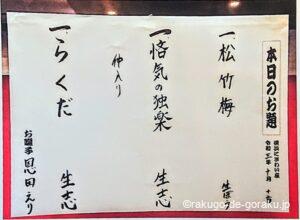 本日のお題
横浜にぎわい座
一 松竹梅
一 悋気の独楽 生志
仲入り
一 らくだ 生志
お囃子 恩田えり
©rakugo-de-goraku.jp